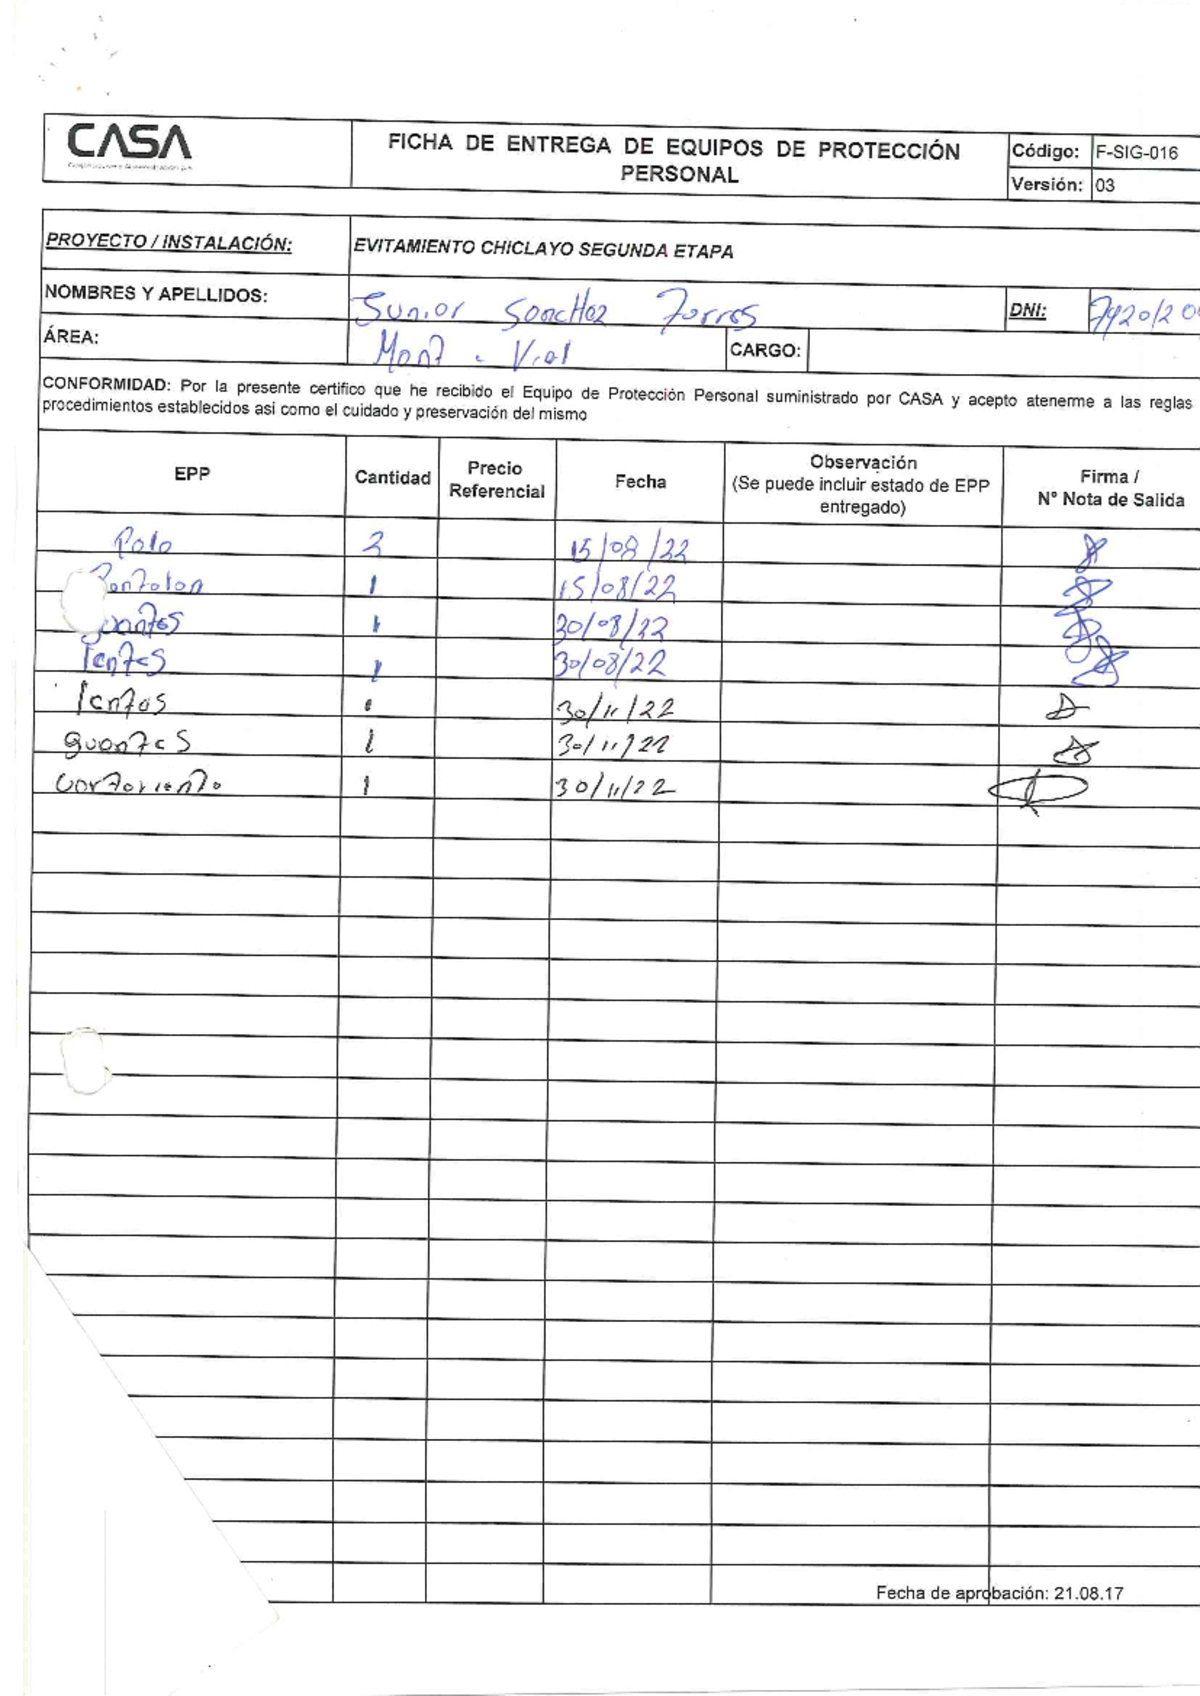 CASA
FICHA DE ENTREGA DE EQUIPOS DE PROTECCIÓN
PERSONAL
Código: F-SIG-016
Versión: 03
PROYECTO / INSTALACIÓN: EVITAMIENTO CHICLAYO SEGUNDA ETAPA
NOMBRES Y APELLIDOS: Junior Sanchez Torres DNI:
ÁREA: Mant. Vial CARGO:
CONFORMIDAD: Por la presente certifico que he recibido el Equipo de Protección Personal suministrado por CASA y acepto atenerme a las reglas
procedimientos establecidos asi como el cuidado y preservación del mismo
EPP Cantidad Precio Referencial Fecha Observación (Se puede incluir estado de EPP entregado) Firma / N° Nota de Salida
Polo 2 15/08/22
Pantalon 1 15/08/22
guantes 1 30/08/22
lentes 1 30/08/22
lentes 1 30/11/22
guantes 1 30/11/22
cortaviento 1 30/11/22
Fecha de aprobación: 21.08.17